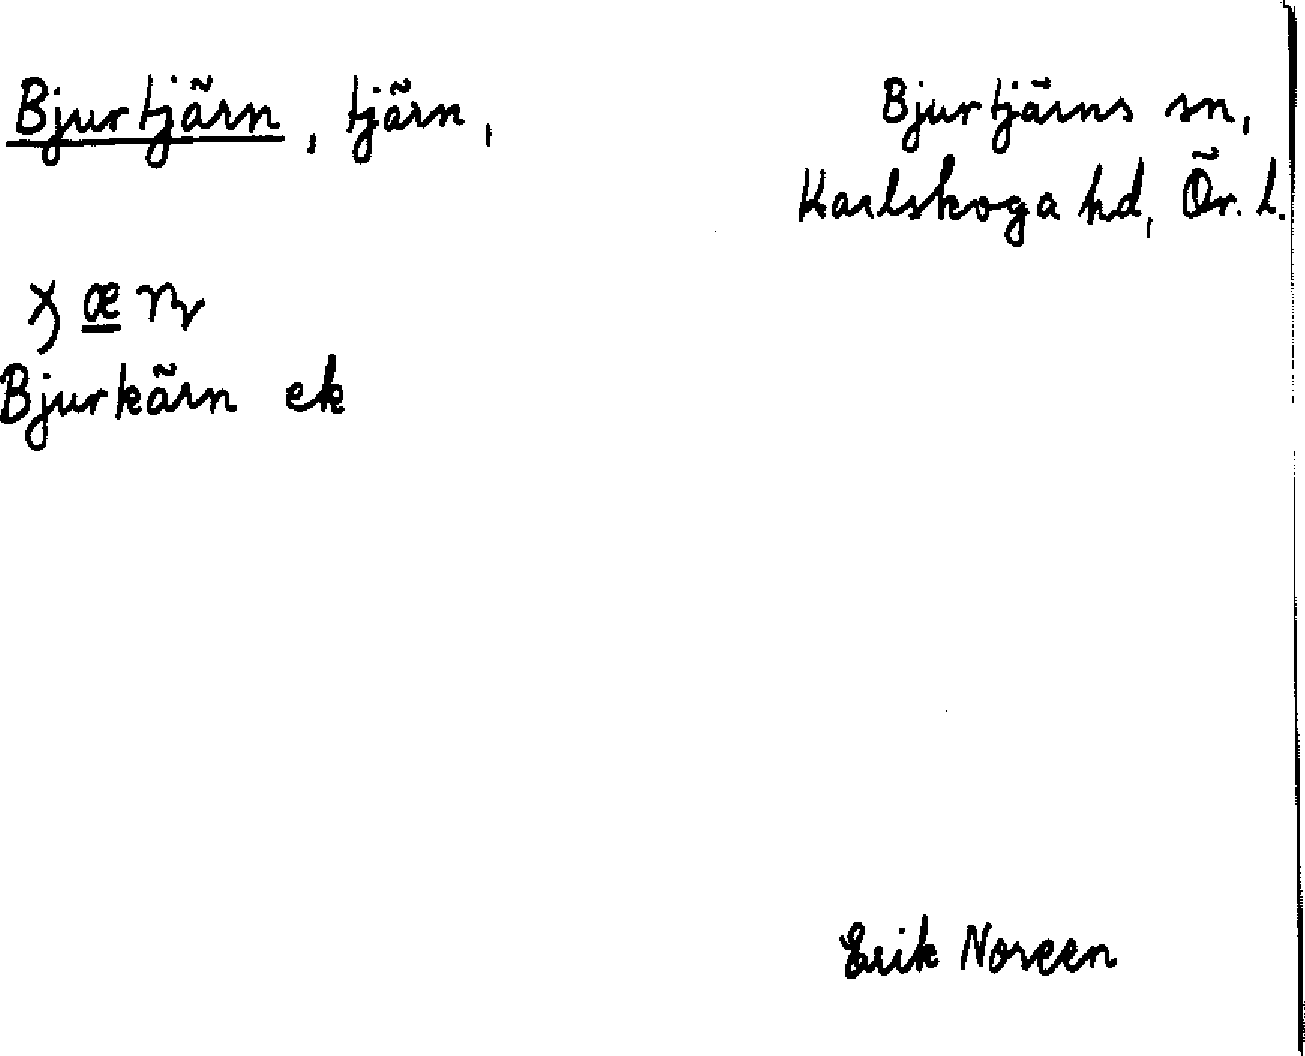 Bjurtjärn, tjärn,
Bjurtjärns sn,
Karlskoga hd, Ör. l.
æ
Bjurkärn ek
Erik Noreen